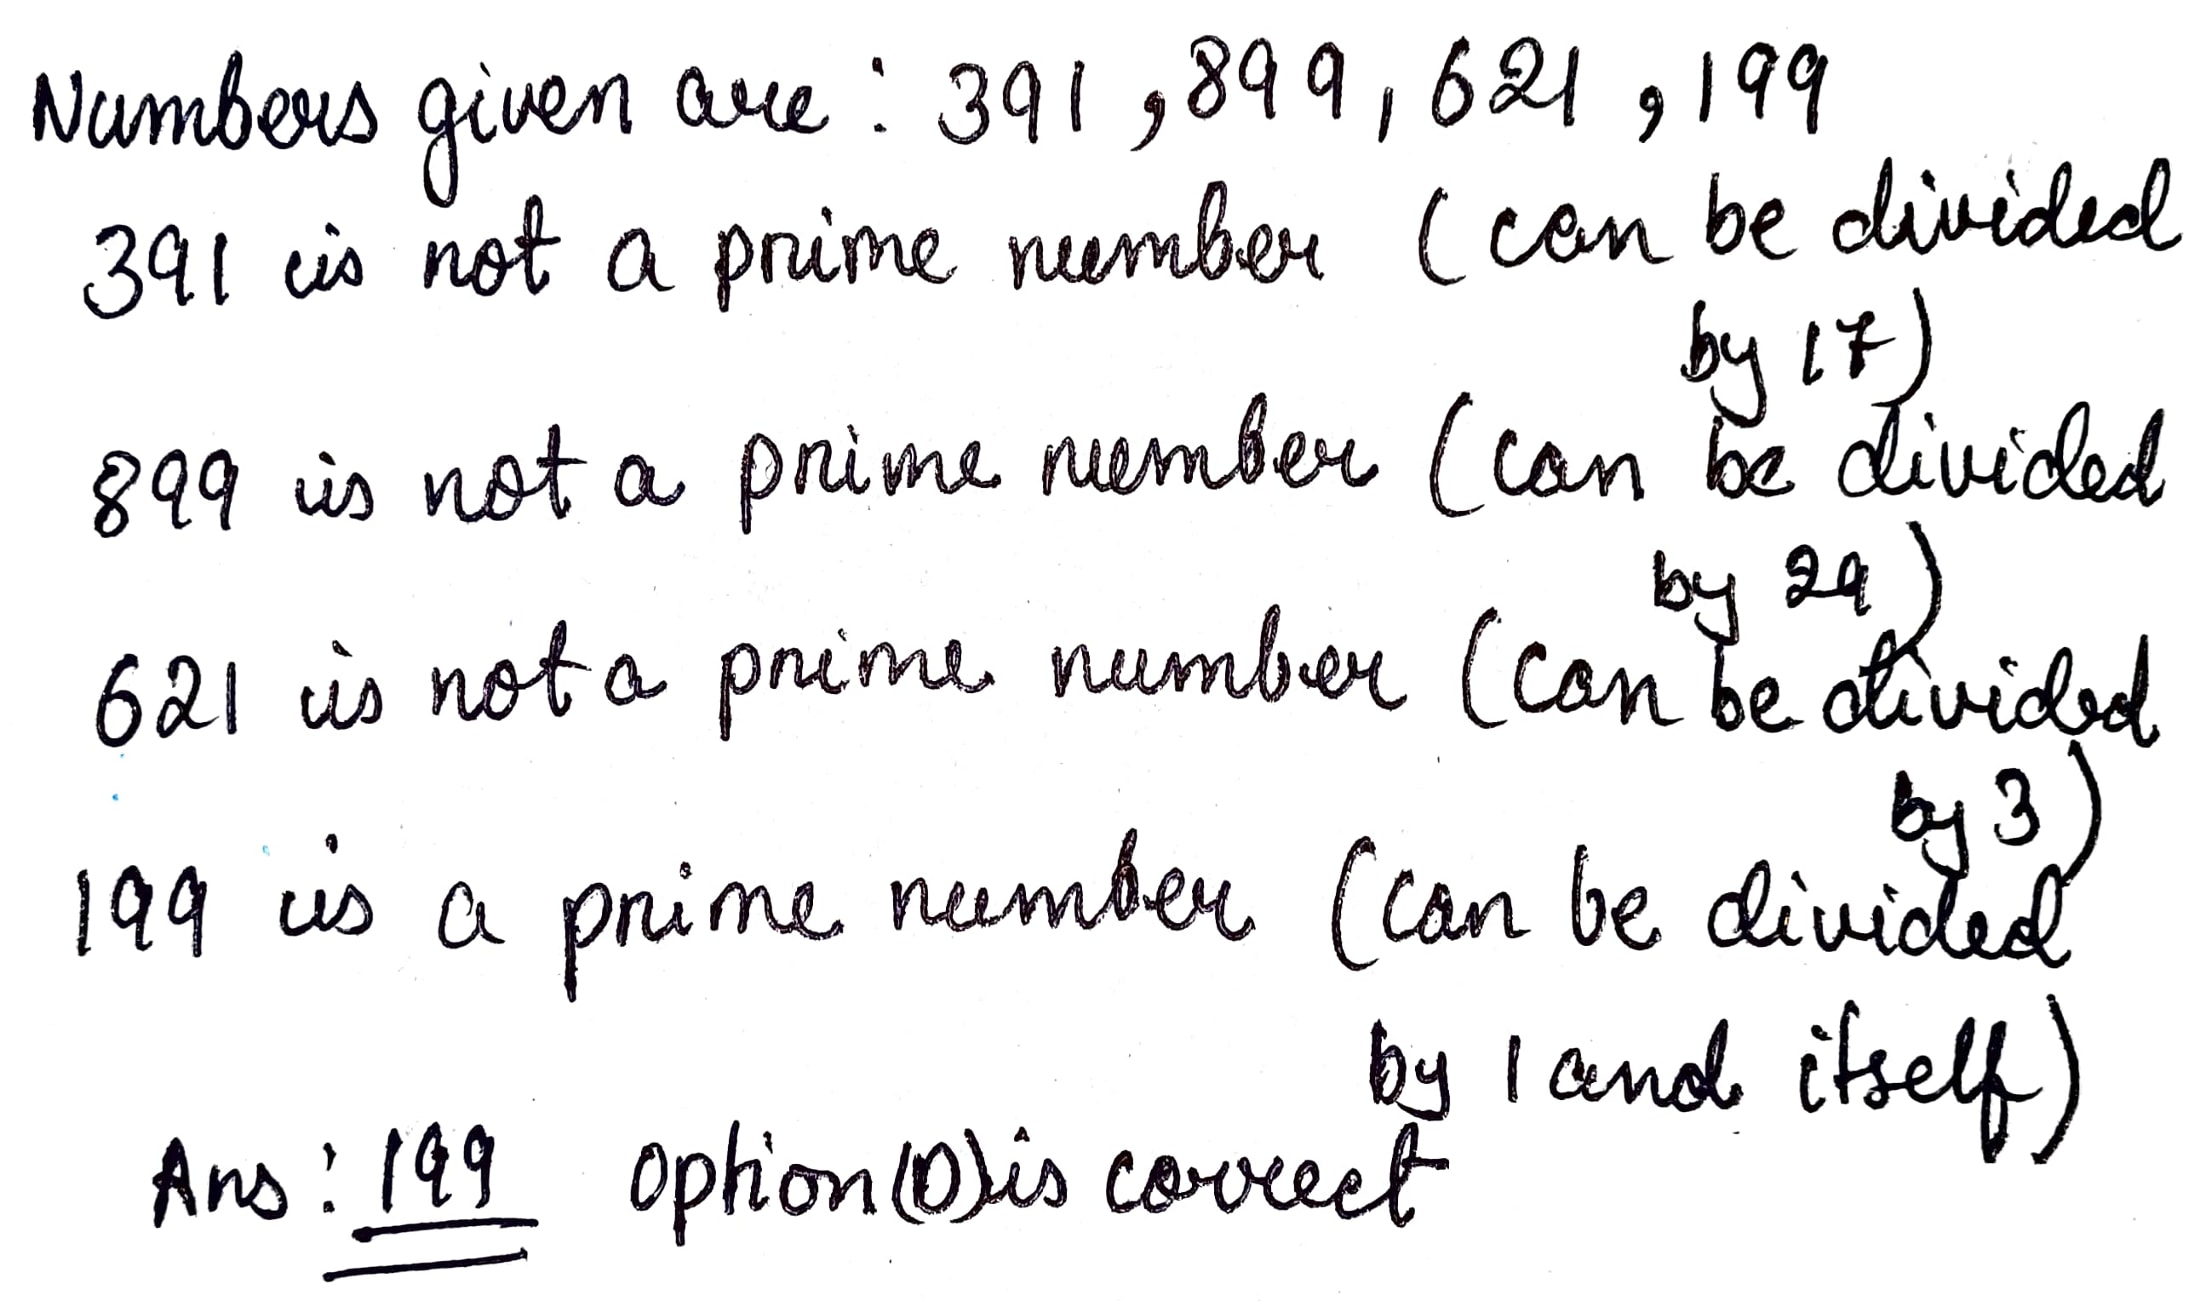 Numbers given are : 391 , 899 , 621 , 199
391 is not a prime number ( can be divided
by 17)
899 is not a prime number (can be divided
by 29)
621 is not a prime number (can be divided
by 3)
199 is a prime number (can be divided
by 1 and itself)
Ans : 199 option (D) is correct